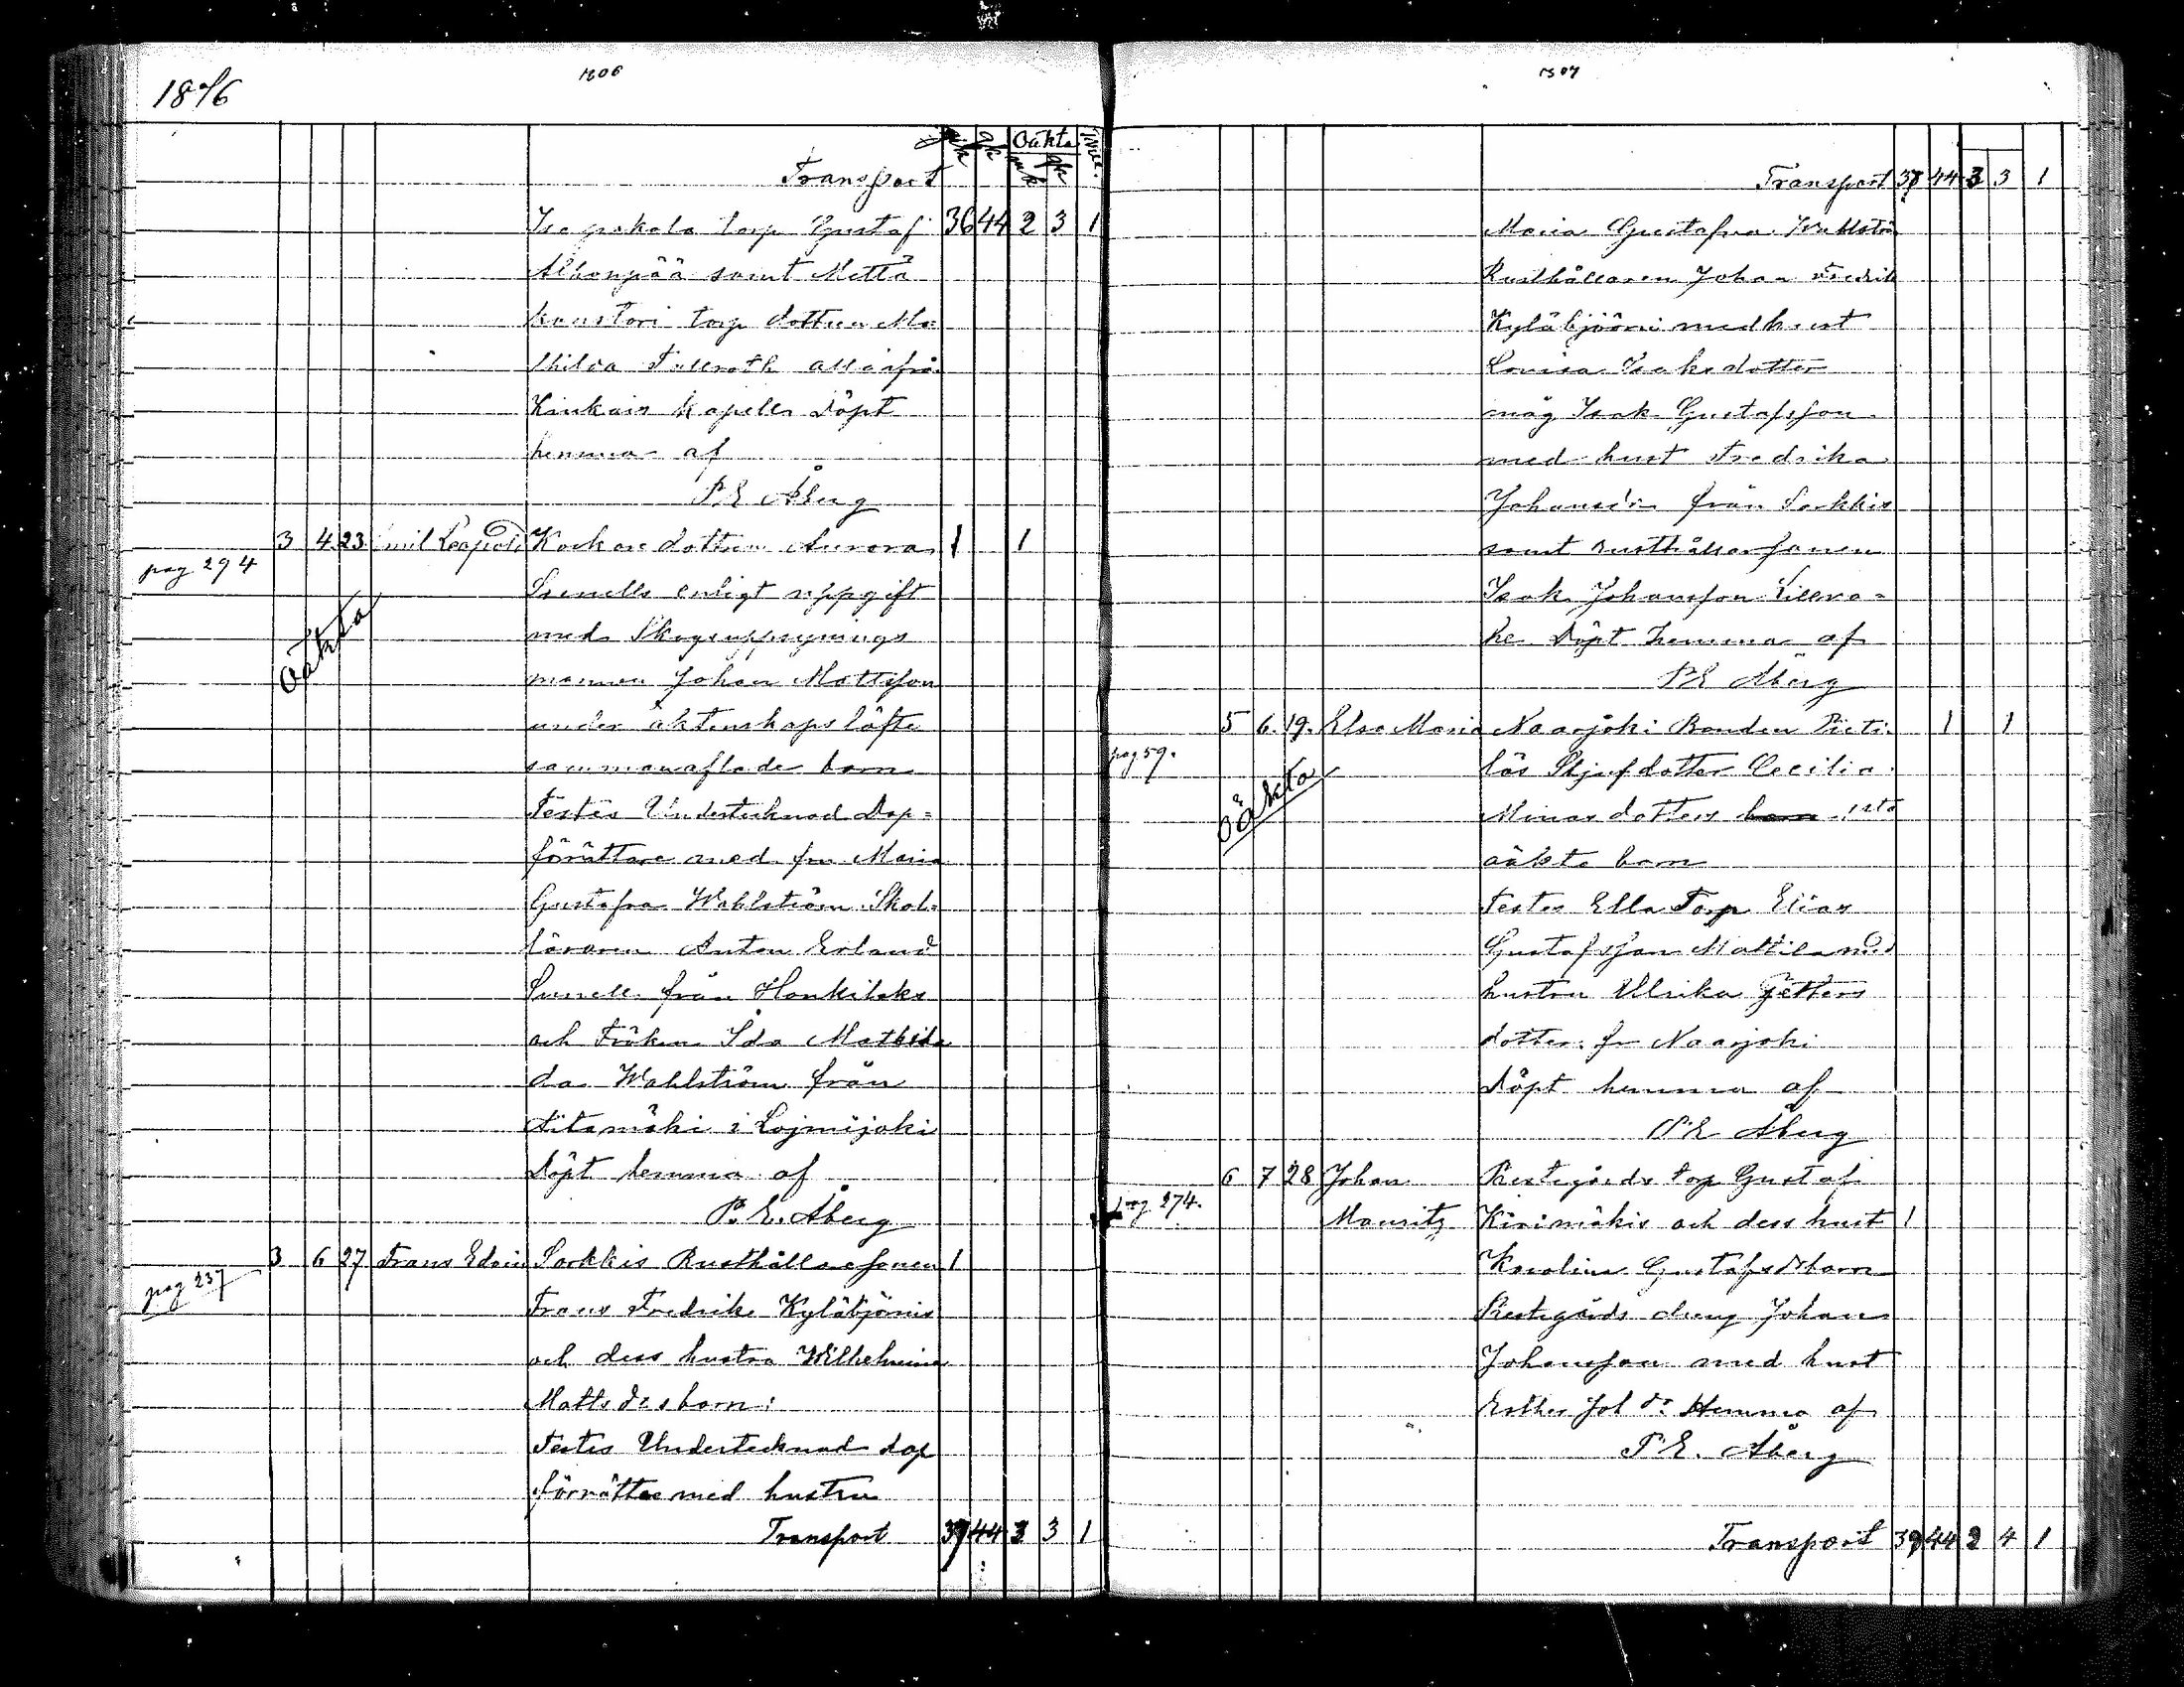 1876
1306
1307
mk qk Oäkta mk qk
Transport
Isoprekola torp Gustaf 36 44 2 3 1
Alhonpää samt Mettä
kunstori torp dottren Ma=
thilda Tillroth alla ifrån
Kiukais kapell Döpt
hemma af
P E Åberg
3 4 23 Emil Leopold Kockens dottren Aurora 1 1
pag 294
Sunells enligt uppgift
med Skogsuppsynings
mannen Johan Mattsson
under äktenskaps löfte
sammanaflade barn
Testes Undertecknad Dop=
förrättare med fru Maria
Gustafva Wahlström Skol-
läraren Anton Erland
Sunell från Honkilaks
och Fröken Ida Mathil
da Wahlström från
i Lojmijoki
Döpt hemma af
P. E. Åberg
Oäkta
3 6 27 Frans Edvin Sorkkis Rusthållaresonen 1
pag 237
Frans Fredrik Kyläbjörnis
och dess hustru Wilhelmina
Matts drs barn:
Testes Undertecknad dop
förrättare med hustru
Transport 37 44 3 3 1
Transport 37 44 3 3 1
Maria Gustafva Wahlström
Rusthållaren Johan Fredrik
Kyläbjörni med hust
Lovisa Isaksdotter
måg Isak Gustafsson
med hust Fredrika
Johansdr från Sorkkis
samt rusthållarsonen
Isak Johansson Sillva=
ke Döpt hemma af
P E Åberg
5 6 19. Elsa Maria Naarjoki Bonden Pieti- 1 1
pag 59.
läs Stjufdotter Cecilia
Minas dotters 1sta
oäkta barn
Testes Ella Torp Elias
Gustafsson Mattila med
hustru Ulrika Petters
dotter fr Naarjoki
Döpt hemma af
P E Åberg
Oäkta
6 7 28 Johan Prestgårds torp Gustaf
pag 274.
Mauritz Kirimäkis och dess hust 1
Karolina Gustafs dr barn
Prestgårds dreng Johan
Johansson med hust
Esther Joh dr Hemma af
P. E. Åberg
Transport 38 44 2 4 1